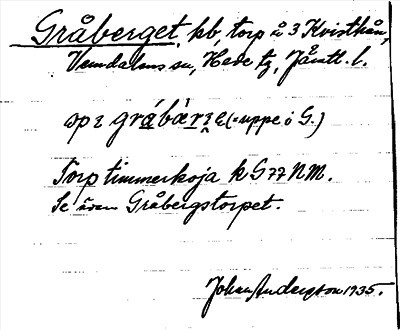 Gråberget, kb, torp å 3 Kvistkån,
Vemdalens sn, Hede tg, Jämtl. l.
sp ɛ gråbárɛ (= uppe i G.)
Torp timmerkoja k G 77 NM.
Se även Gråbergstorpet.
Johan Anderson 1935.